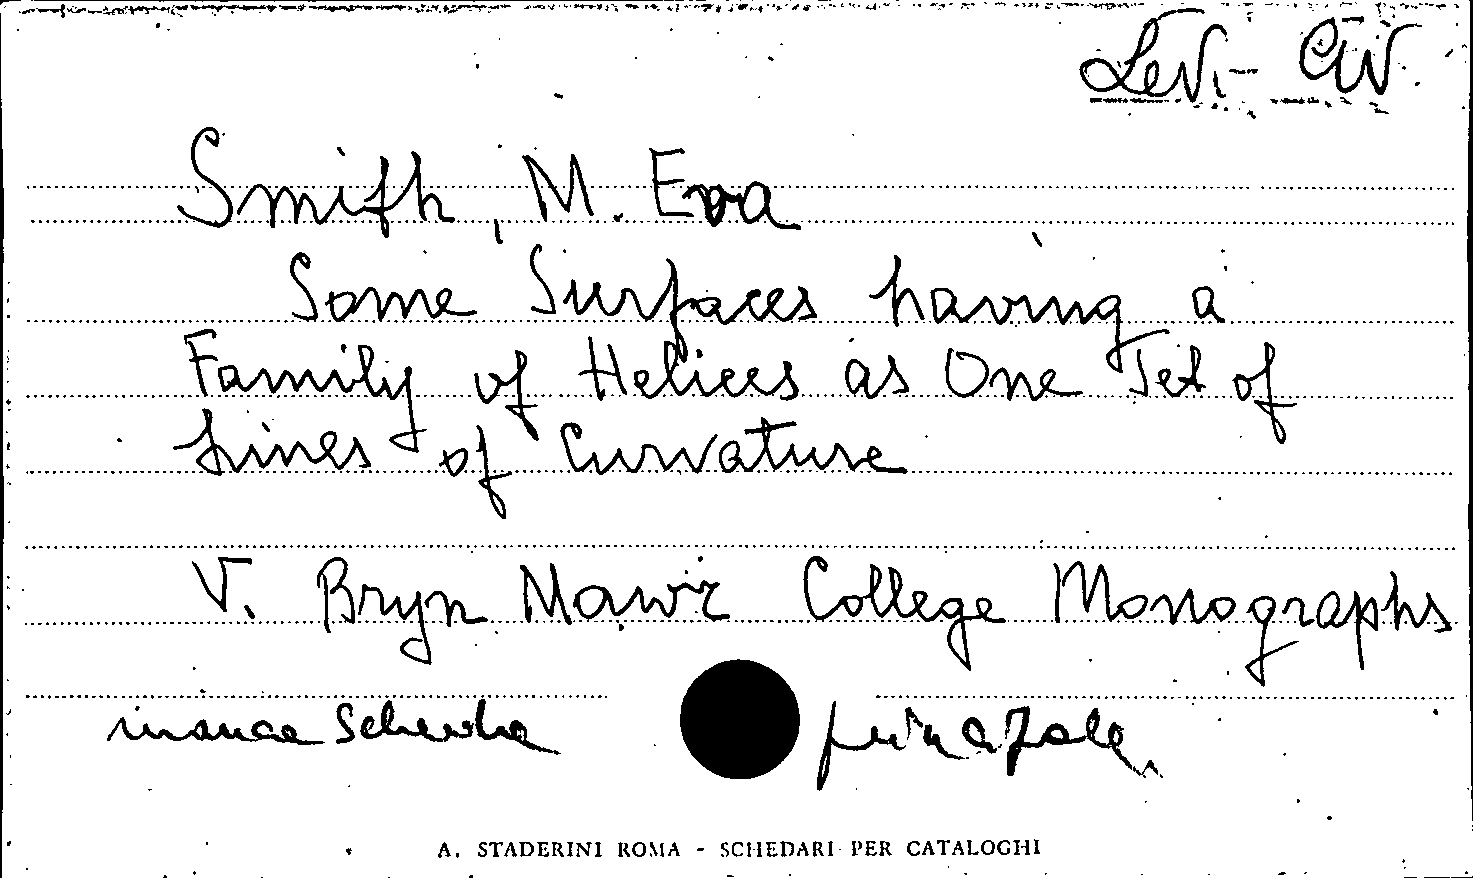 Levi-Civ.
Smith, M. Eva
Some Surfaces having a
Family of Helices as One Set of
Lines of Curvature
V. Bryn Mawr College Monographs
manca Scheda principale
A. STADERINI ROMA - SCHEDARI PER CATALOGHI